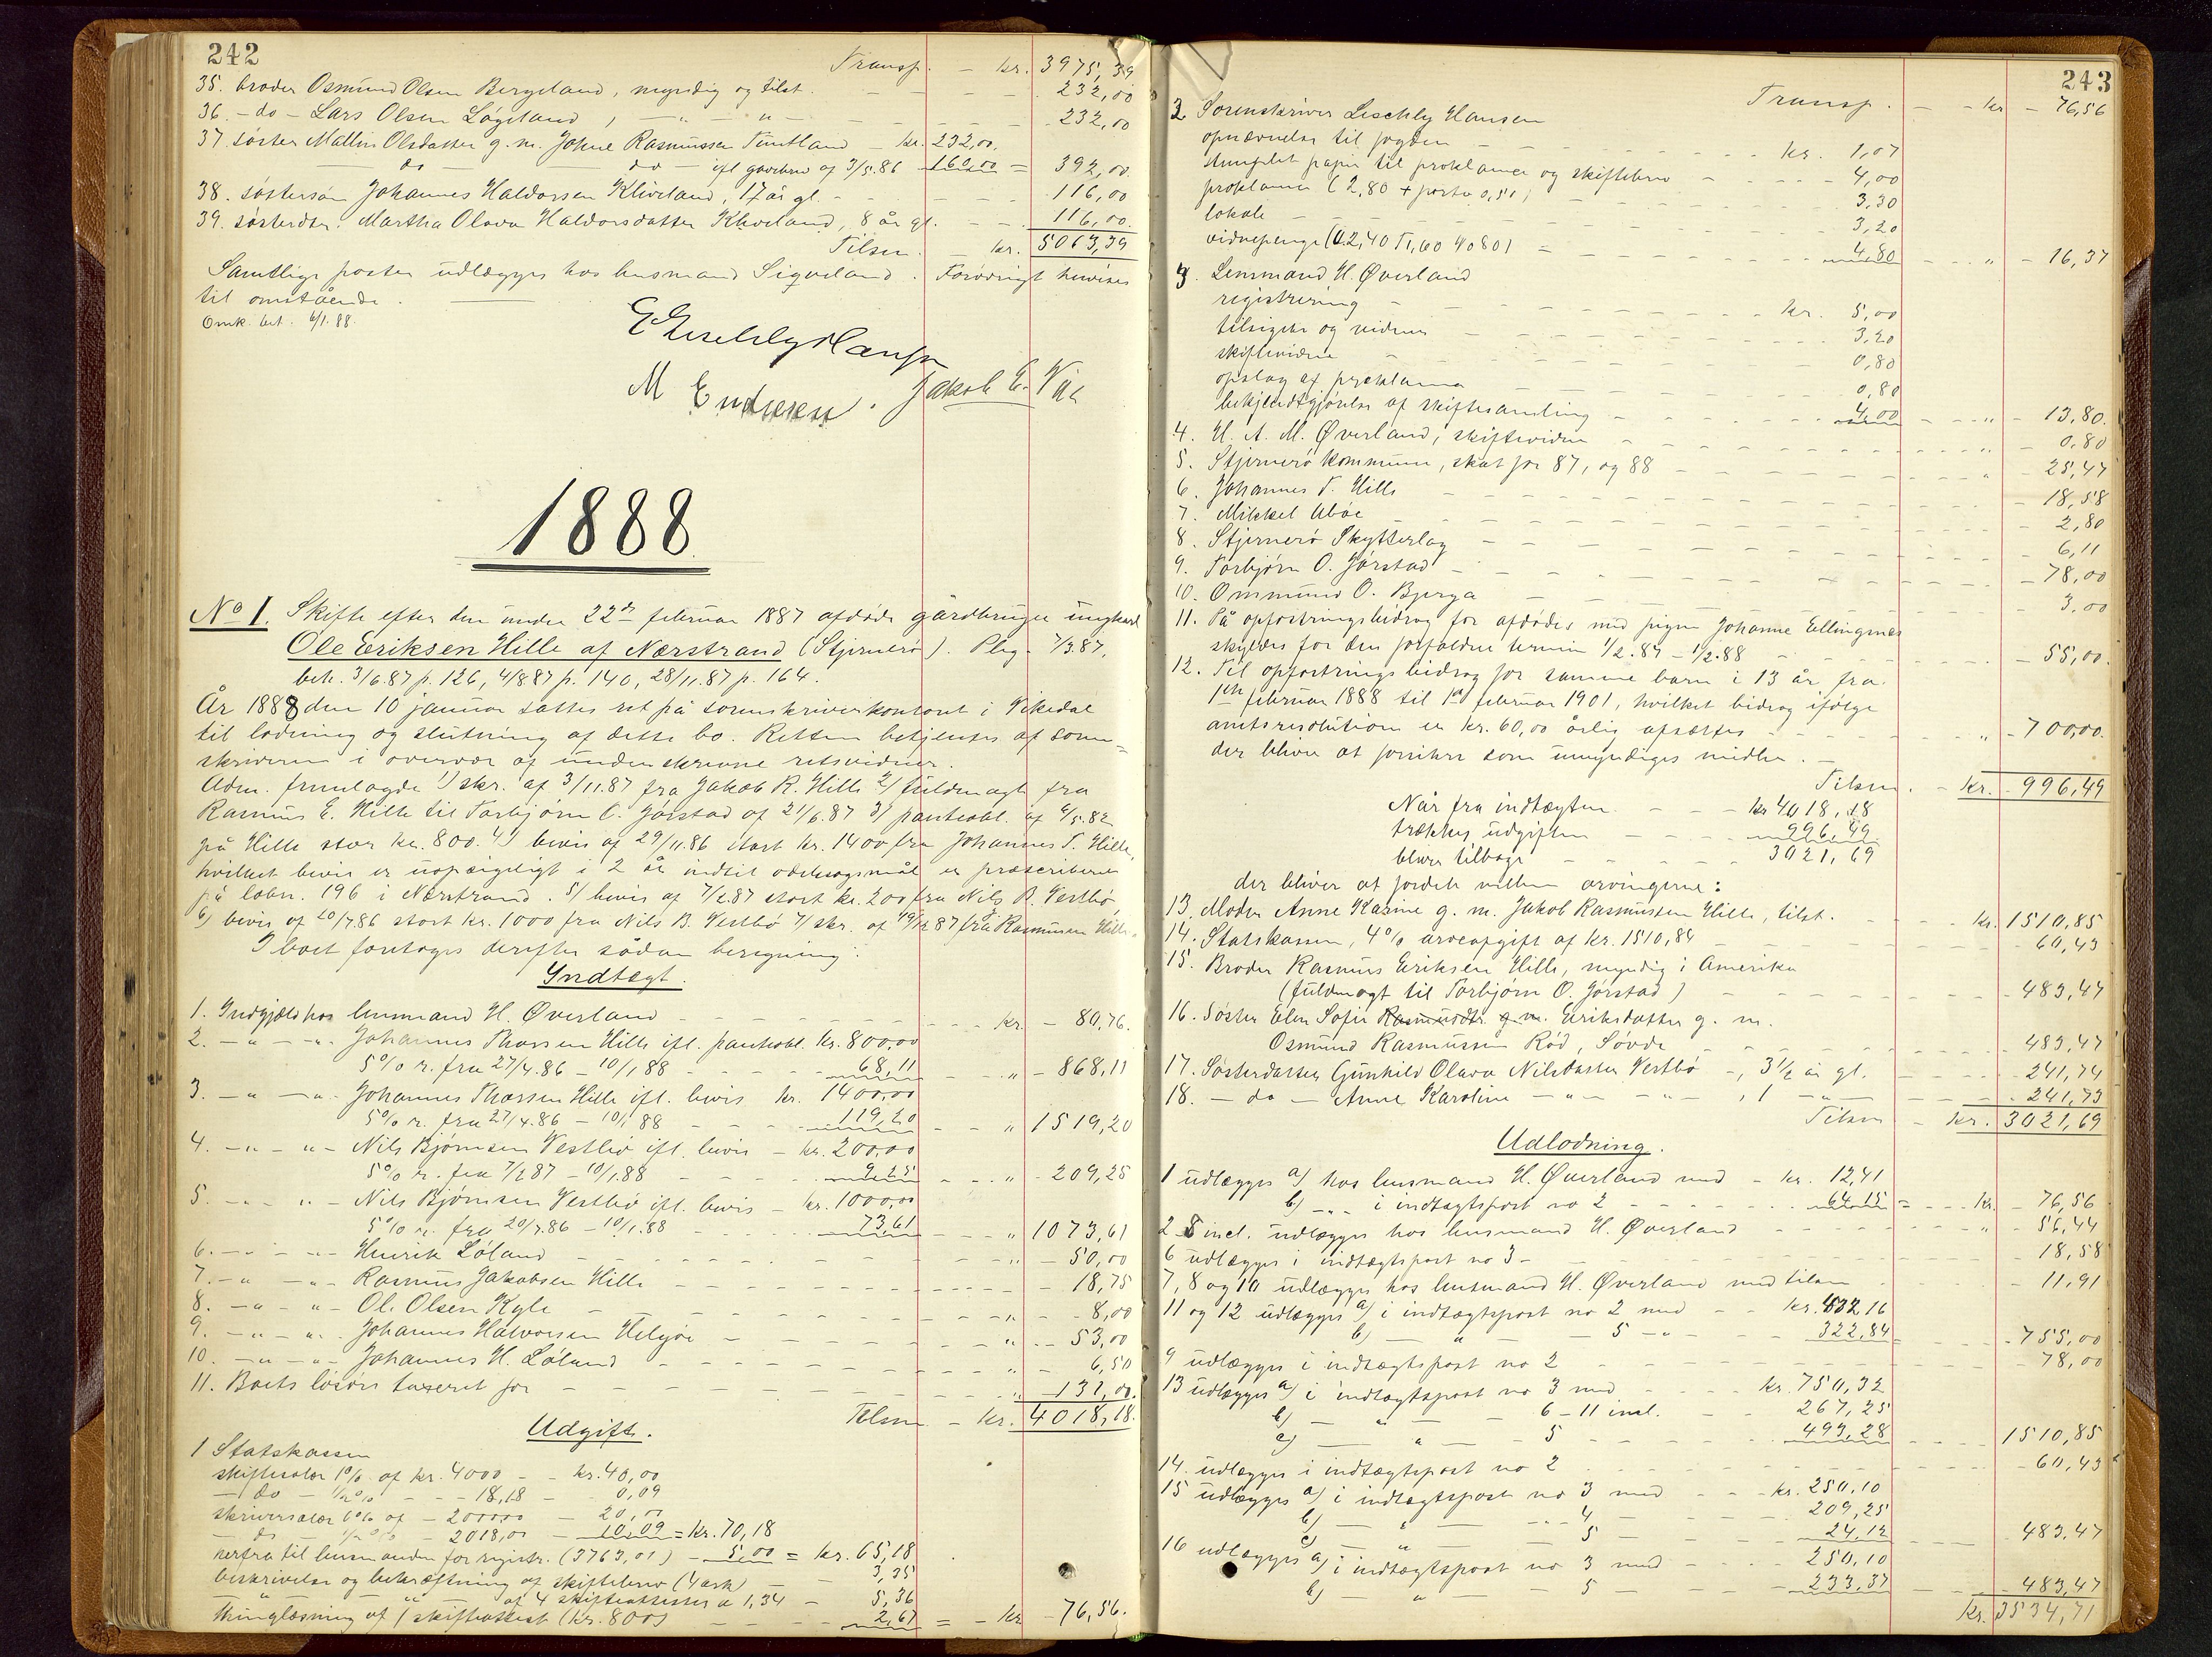 242
Transp. - kr. 3975,39
35. broder Osmund Olsen Bergeland, myndig og tilst. 232,00
36. - do - Lars Olsen Løgeland, - " - " - 232,00
37. søster Mallin Olsdatter g. m. Johne Rasmussen Tuntland - kr. 232,00.
do - do ifl gavebrev af 3/5.86 160,00 = 392,00.
38. søstersøn Johannes Haldorsen Kliveland, 17 år gl. - 116,00
39. søsterdtr. Martha Olava Haldorsdatter Kliveland, 8 år gl. - 116,00.
Tilsm. kr. 5063,39
Samtlige poster udlægges hos lensmand Sigveland. Forøvrigt henvises
til omstående.
Omk. bet. 6/1.88.
E Leschly Hansen
M Endresen. Jakob E. Vik
1888
No 1. Skifte efter den under 22de februar 1887 afdøde gårdbruger ungkarl
Ole Eriksen Hille af Nærstrand (Stjernerø). Plag. 7/3.87,
beh. 3/6.87 p. 126, 4/8.87 p. 140, 28/11.87 p. 164.
År 1888 den 10 januar sattes ret på sorenskriverkontoret i Vikedal
til lodning og slutning af dette bo. Retten betjentes af soren=
skriveren i overvær af underskrevne retsvidner.
Adm. fremlagde 1) skr. af 3/11.87 fra Jakob R. Hille 2/ fuldmagt fra
Rasmus E. Hille til Torbjørn O. Jørstad af 21/6.87 3) panteobl. af 4/5.82
på Hille stor kr. 800. 4) bevis af 29/11.86 stort kr. 1400 fra Johannes T. Hille,
hvilket bevis er uopsigeligt i 2 år indtil odelsøgsmål er præscriberet
på løbn. 196 i Nærstrand. 5/ bevis af 7/2.87 stort kr. 200 fra Nils B. Vestbø
6) bevis af 20/7.86 stort kr. 1000 fra Nils B. Vestbø 7/ skr. af 19/12 87 fra Rasmus Hille.
I boet foretoges derefter sådan beregning:
Indtægt.
1. Indgjæld hos lensmand H. Øverland - kr. - 80,76.
2. - " - " - Johannes Thorsen Hille ifl. panteobl. kr. 800,00
5% r. fra 27/4.86 - 10/1 88 - 68,11 " - 868,11
3. - " - " - Johannes Thorsen Hille ifl. bevis kr. 1400,00
5% r. fra 27/4.86 - 10/1 88 - 119,20 " 1519,20
4. - " - " - Nils Bjørnsen Vestbø ifl. bevis - kr. 200,00
5% r. fra 7/2 87 - 10/1.88 - 9,25 " - 209,25
5. - " - " - Nils Bjørnsen Vestbø ifl. bevis - kr. 1000,00
5% r. fra 20/7.86 - 10/1.88 - 73,61 " 1073,61
6. - " - " - Henrik Løland - " - 50,00
7. - " - " - Rasmus Jakobsen Hille - 18,75
8. - " - " - Ole Olsen Kyle - " - 8,00
9. - " - " - Johannes Halvorsen Helgøe - " - 53,00
10. - " - " - Johannes H. Løland - " - 6,50
11. Boets løsøre taxeret for - " - 131,00.
Tilsm - kr. 4018,18.
Udgift.
1 Statskassen
skiftesalær 1% af kr. 4000 - - kr. 40,00
- do - 1/2% - - - 18,18 - 0,09
skriversalær 1% af - 2000,00 - 20,00
- do - 1/2% - 2018,00 - 10,09 = kr. 70,18
herfra til lensmanden for registr. (3763,01) - 5,00 = kr. 65,18
beskrivelse og bekræftning af skiftebrev (4 ark) - 3,35
- " - " - af 4 skifteattester a 1,34 - 5,36
thinglæsning af 1 skifteattest (kr. 800) 2,67 = - kr - 76,56.
243
Transp. - - kr - 76,56
2. Sorenskriver Leschly Hansen
opnævnelse til fogden - kr. 1,07
stemplet papir til proklama og skiftebrev - 4,00
proklama (2,80 + porto 0,50) 3,30
lokale - 3,20
vidnepenge (á 2,40 T 1,60 4/0 80) = 4,80 " - 16,37
3. Lensmand H. Øverland
registrering - kr. 5,00
tilsigelse og vidner 3,20
skiftevidne 0,80
opslag af proklama 0,80
bekjendtgjørelse af skiftesamling - 4,00 " - 13,80.
4. H. A. M. Øverland, skiftevidne " - 0,80
5. Stjernerø kommune, skat for 87, og 88 " - 25,47
6. Johannes T. Hille - 18,58
7. Mikkel Ubøe - 2,80
8. Stjernerø Skytterlag - 6,11
9. Torbjørn O. Jørstad - 78,00
10. Ommund O. Bjerga - 3,00
11. På opfostringsbidrag for afdødes med pigen Johanne Ellingsnes
skyldes for den forfaldne termin 1/2.87 - 1/2.88 - 55,00.
12. Til opfostringsbidrag for samme barn i 13 år fra
1ste februar 1888 til 1ste februar 1901, hvilket bidrag ifølge
amtsresolution er kr. 60,00 årlig afsættes " - 700,00.
der bliver at forsikre som umyndiges midler. -
Tilsm. - kr. 996,49
Når fra indtægten - kr 4018,18
trækkes udgiften - 996,49
bliver tilbage - 3021,69
der bliver at fordele mellem arvingerne:
13. Moder Anne Karine g. m. Jakob Rasmussen Hille, tilst. - kr. 1510,85
14. Statskassen, 4% arveafgift af kr. 1510,84 - 60,43
15. Broder Rasmus Eriksen Hille, myndig i Amerika
(fuldmagt til Torbjørn O. Jørstad) - 483,47
16. Søster Elen Sofie Rasmusdtr. g. m. Eriksdatter g. m.
Osmund Rasmussen Rød, Søvde - 483,47
17. Søsterdatter Gunhild Olava Nilsdatter Vestbø -, 3 1/2 år gl. 241,74
18. - do - Anne Karoline - " - " - , 1 - " - 241,73
Tilsm - kr. 3021,69
Udlodning.
1 udlægges a) hos lensmand H. Øverland med - kr. 12,41
b) - " - i indtægtspost no 2 - 64,15 = kr. - 76,56
2-5 incl. udlægges hos lensmand H. Øverland " - 56,44
6 udlægges i indtægtspost no 3 - 18,58
7, 8 og 10 udlægges hos lensmand H. Øverland med tilsm 11,91
11 og 12 udlægges a) i indtægtspost no 2 med - - kr. 432 16
b) - " - 5 - " - 322,84 - 755,00
9 udlægges i indtægtspost no 2 - 78,00
13 udlægges a) i indtægtspost no 3 med - kr. 750,32
b) - " - 6 - 11 incl. 267,25
c) - " - 5 - 493,28 1510,85
14. udlægges i indtægtspost no 2 - 60,43
15 udlægges a) i indtægtspost no 3 med - - kr. 250,10
b) - " - 4 - 209,25
c) - " - 5 - 24,12 - 483,47
16 udlægges a) i indtægtspost no 3 med - 250,10
b) - " - 5 - 233,37 - 483,47
kr. 3534,71